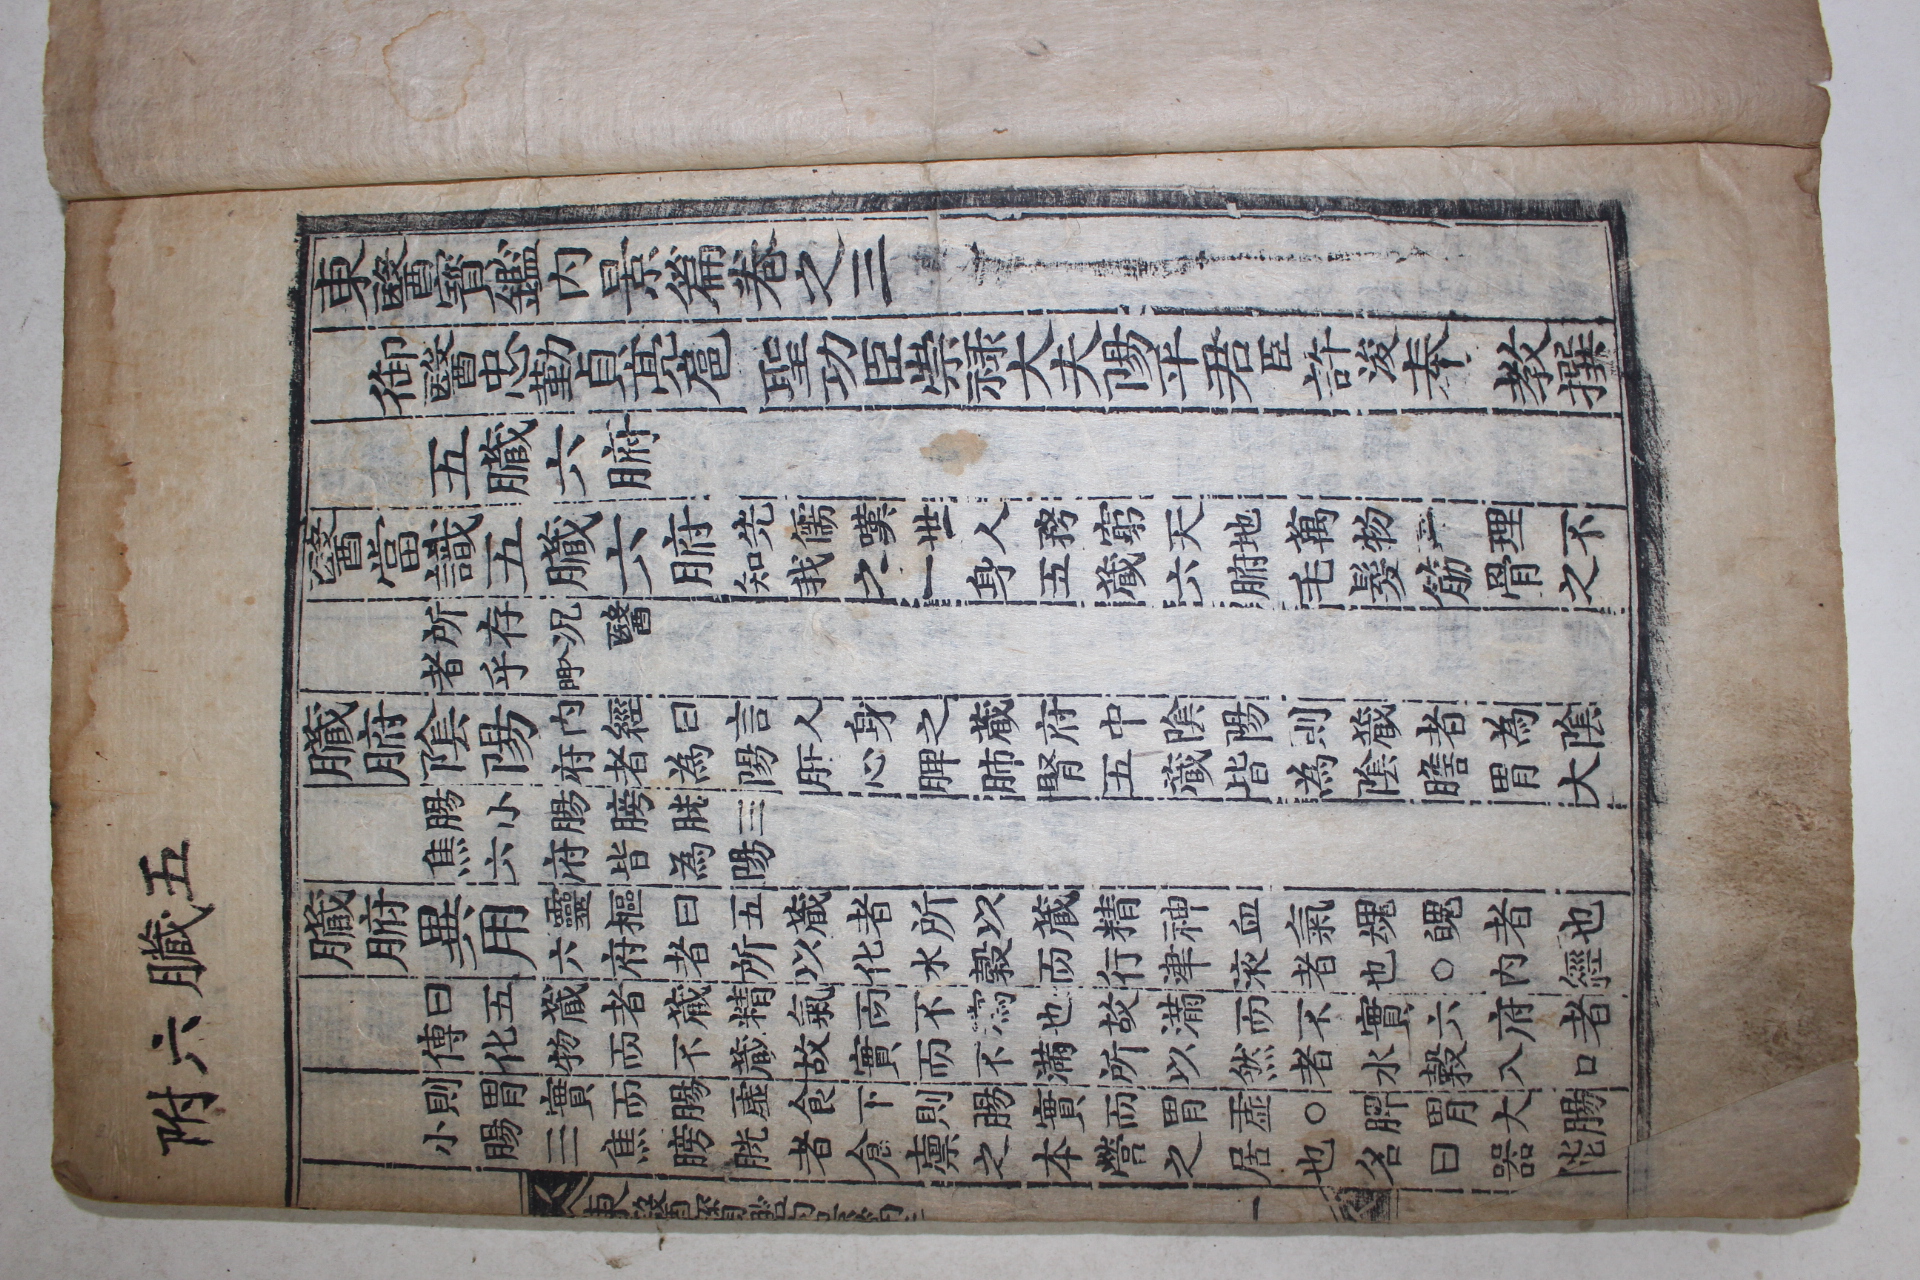 五臟六附
東醫寶鑑內景篇卷之三
御醫忠勤貞亮扈 聖功臣崇祿大夫陽平君臣許浚奉 教撰
五臟六腑
醫當識五臟六腑
先儒嘆世人務窮天地萬物之理不
知我之一身五蔵六腑毛髮筋骨之
所存况醫
者乎
臟腑陰陽
內經曰言人身之蔵府中陰陽則蔵者為陰
府者為陽肝心脾肺腎五蔵皆為陰膽胃大
腸小腸膀胱三
焦六府皆為陽
臟腑異用
靈樞曰五蔵者所以蔵精神血氣魂魄者也
六府者所以化水穀而行津液者也○內經
曰五蔵者蔵精氣而不瀉也故滿而不實六府者
傳化物而不蔵故實而不滿所以然者水穀入口
則胃實而腸虛食下則腸實而胃虛○脾胃大腸
小腸三焦膀胱者倉廩之本營之居也名曰器能
東醫寶鑑內景篇卷三
一